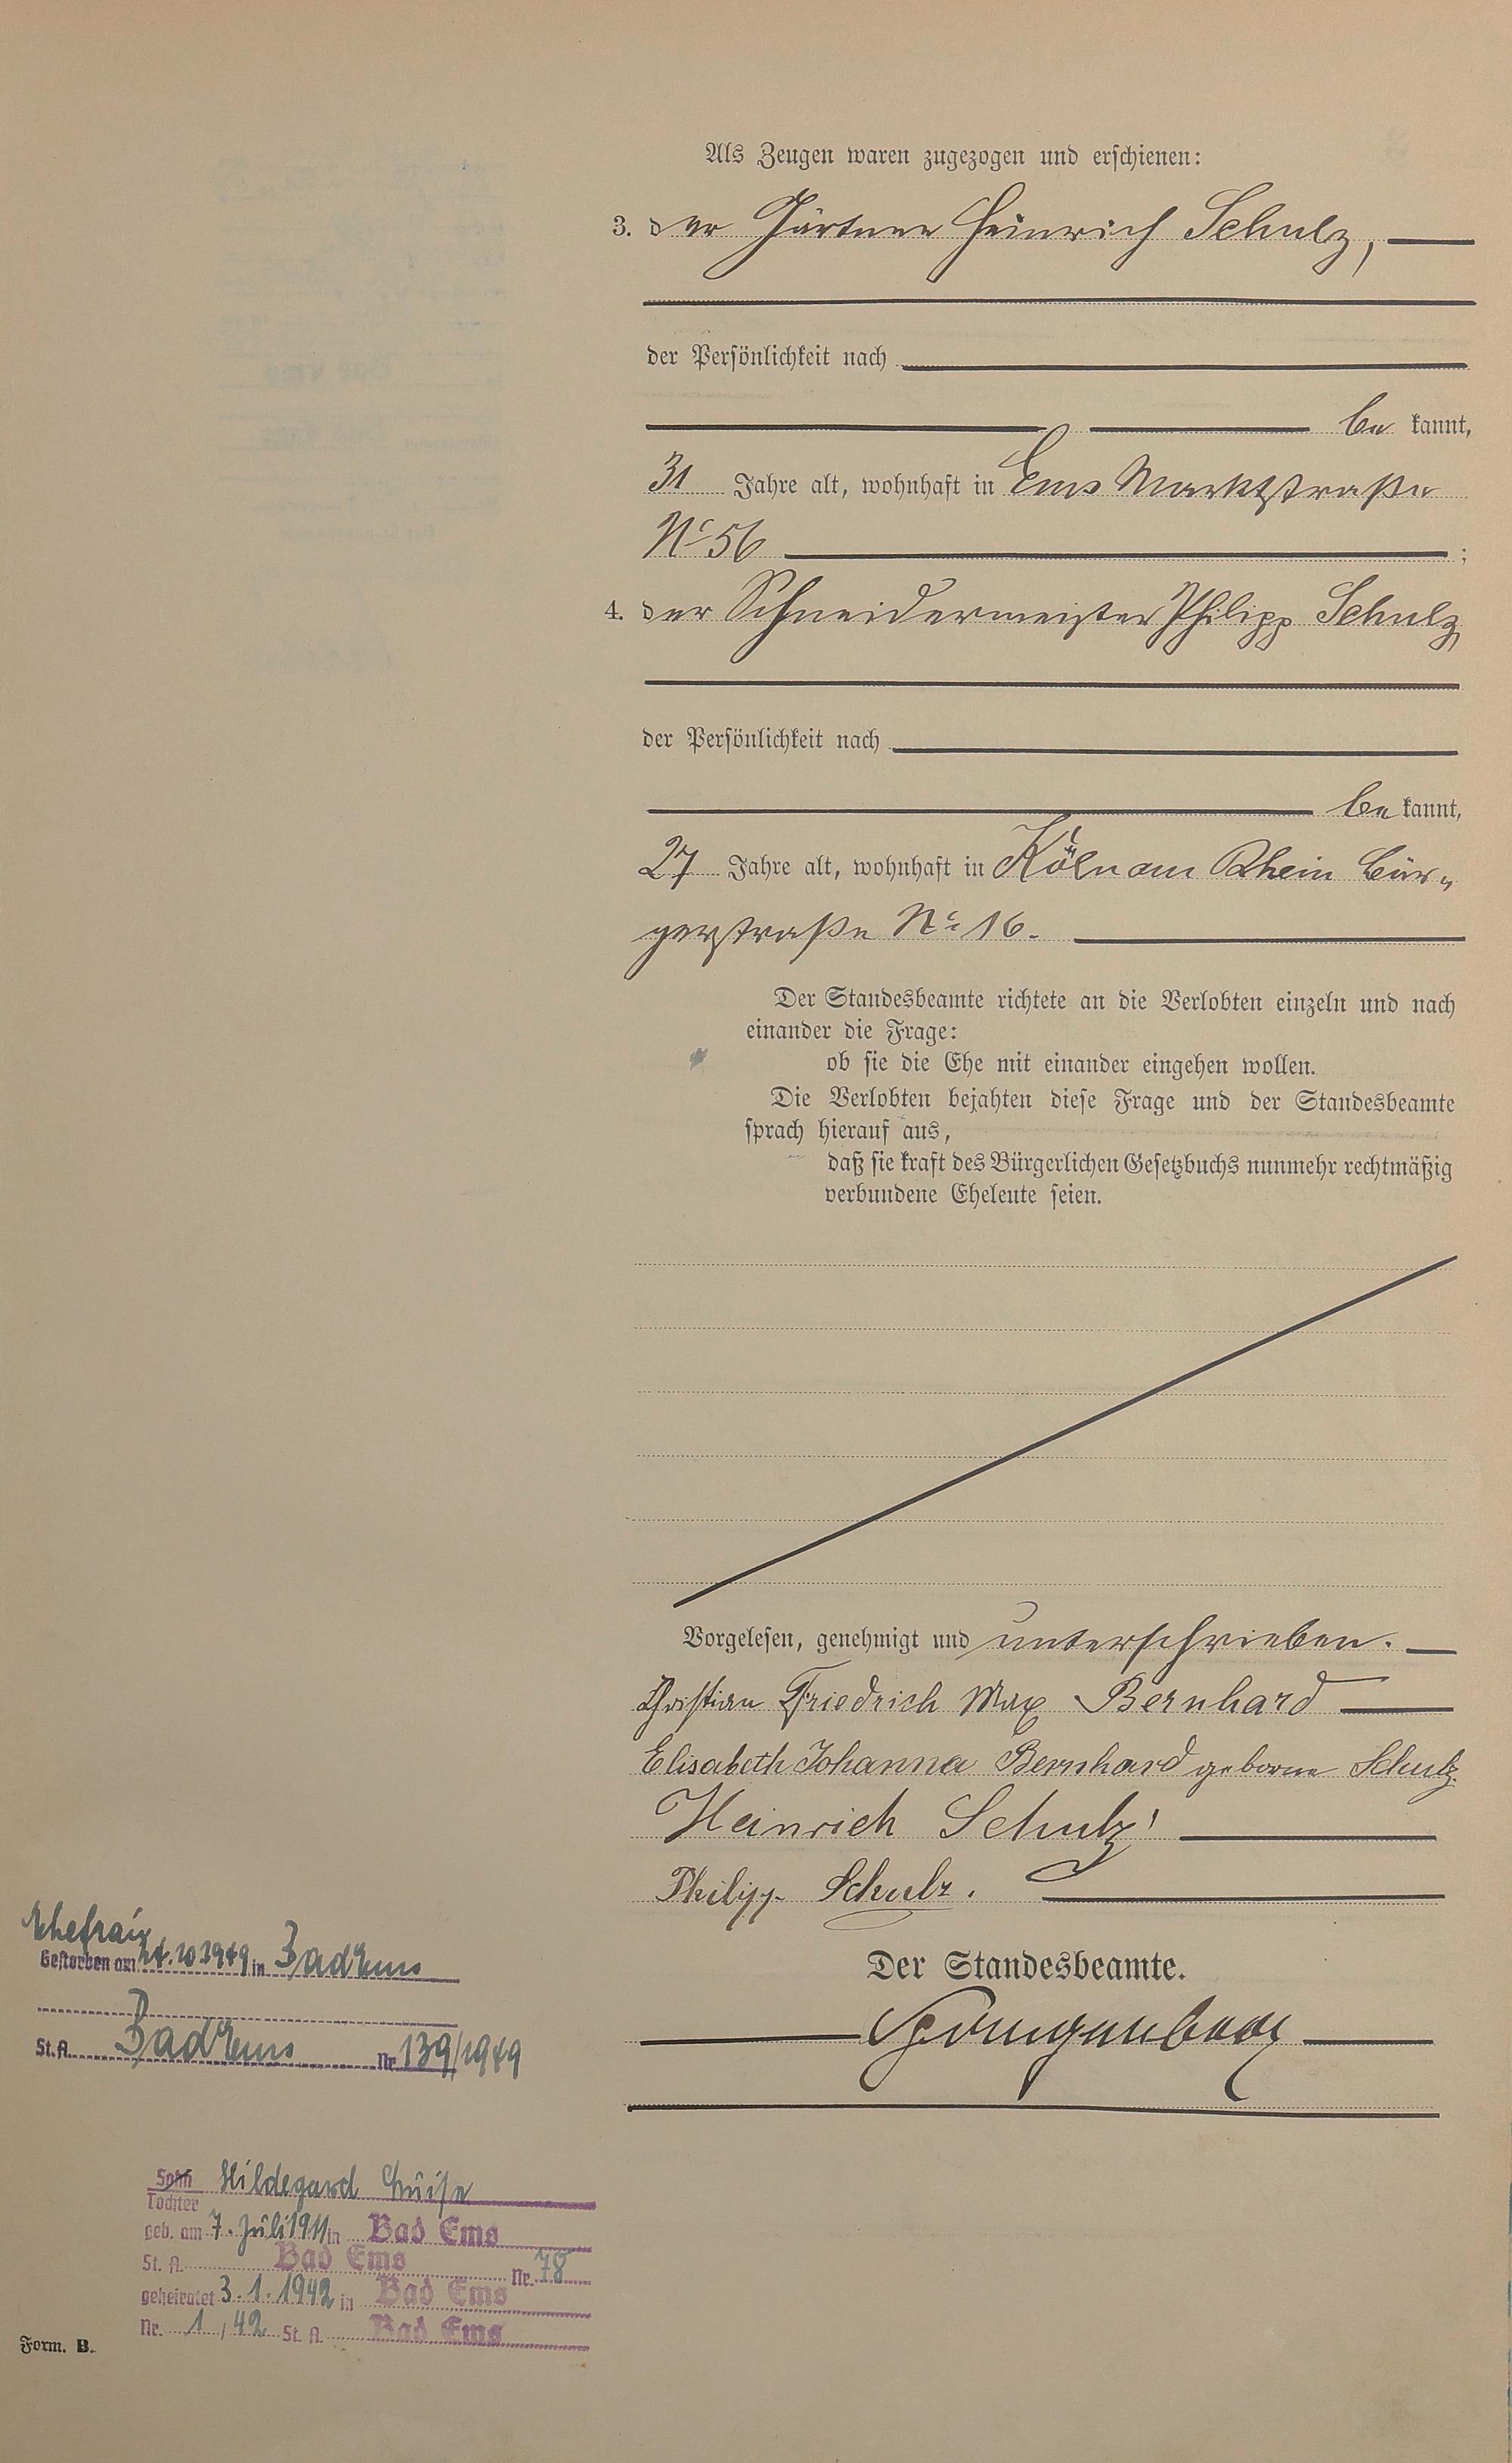 Als Zeugen waren zugezogen und erschienen:
3. der Gärtner Heinrich Schulz,
der Persönlichkeit nach
be kannt,
31 Jahre alt, wohnhaft in Ems Marktstraße
No 56 ;
4. der Schneidermeister Philipp Schulz,
der Persönlichkeit nach
be kannt,
27 Jahre alt, wohnhaft in Köln am Rhein Bür-
gerstraße No 16.
Der Standesbeamte richtete an die Verlobten einzeln und nach
einander die Frage:
ob sie die Ehe mit einander eingehen wollen.
Die Verlobten bejahten diese Frage und der Standesbeamte
sprach hierauf aus,
daß sie kraft des Bürgerlichen Gesetzbuchs nunmehr rechtmäßig
verbundene Eheleute seien.
Vorgelesen, genehmigt und unterschrieben.
Christian Friedrich Max Bernhard
Elisabeth Johanna Bernhard geborne Schulz.
Heinrich Schulz
Philipp Schulz.
Der Standesbeamte.
Ehefrau
Gestorben am 24.10.1949 in Bad Ems
St.A. Bad Ems Nr. 139/1949
Sohn Hildegard Luise
Tochter
geb. am 7. Juli 1911 in Bad Ems
St. A. Bad Ems Nr. 78
geheiratet 3.1.1942 in Bad Ems
Nr. 1/42 St. A. Bad Ems
Form. B.